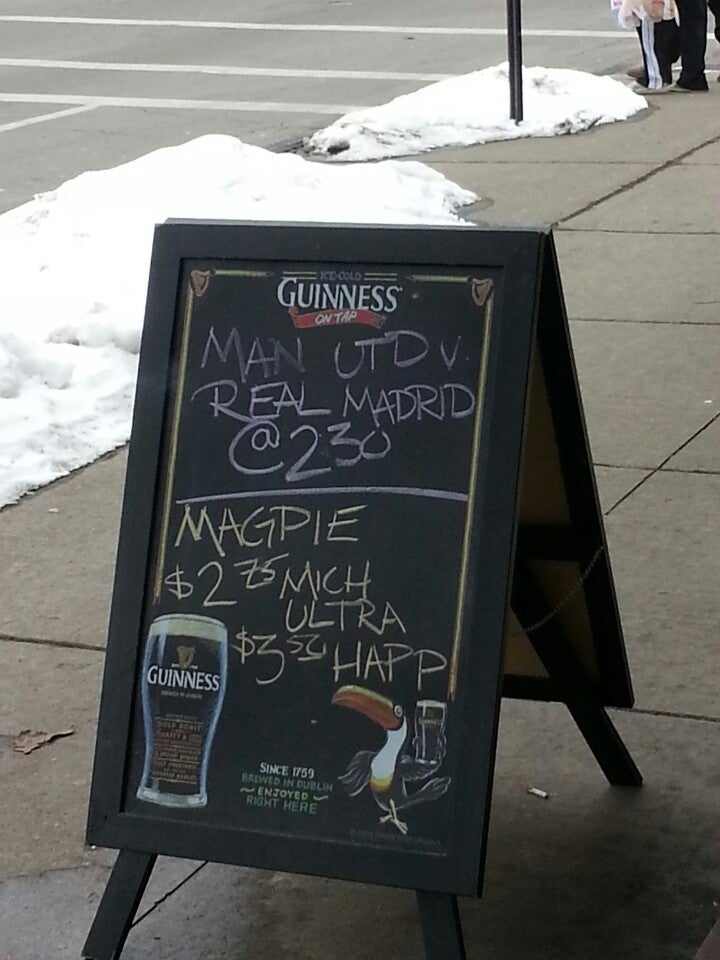 ICE-COLD
GUINNESS
ON TAP
MAN UTD V.
REAL MADRID
@ 230
MAGPIE
$2 75 MICH
ULTRA
$3 50 HAPP
GUINNESS
GUINNESS
SINCE 1759
BREWED IN DUBLIN
~ ENJOYED ~
RIGHT HERE